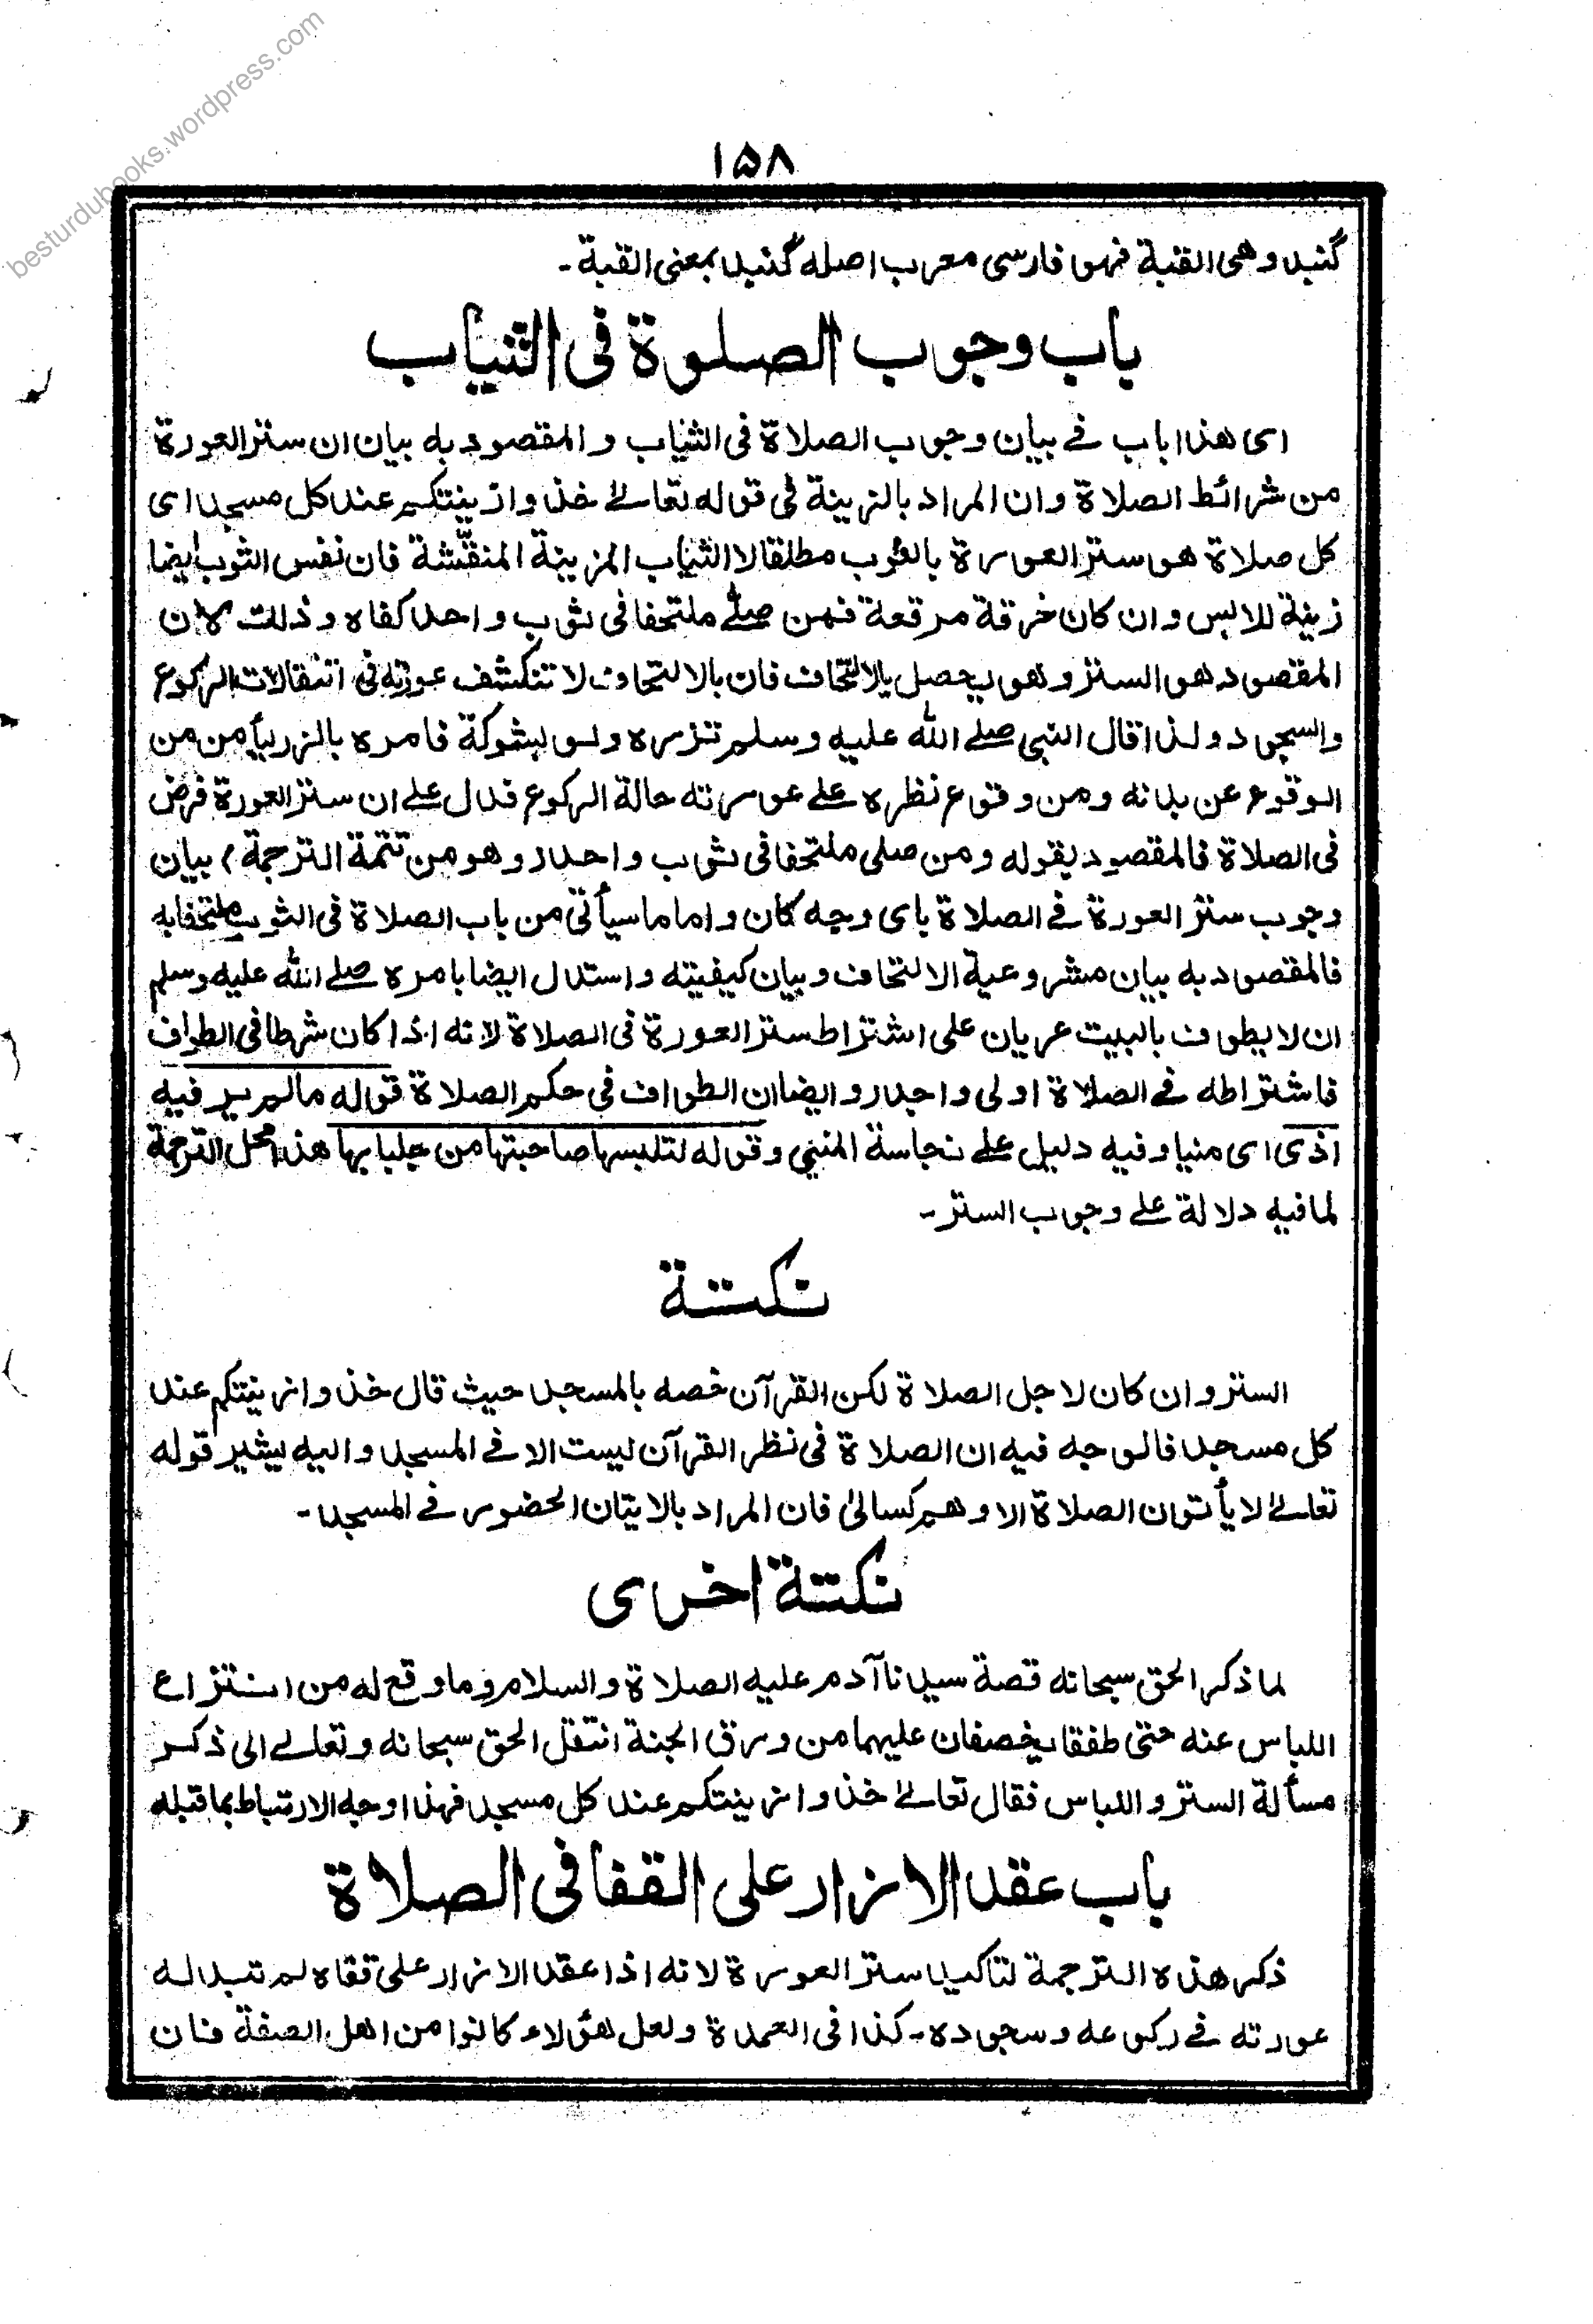 besturdubooks.wordpress.com
۱۵۸
گنبد وهى القبة فهو فارسى معرب اصله گنبد بمعنى القبة-
باب وجوب الصلوة فى الثياب
اى هذا اباب فے بيان وجوب الصلاة فى الثياب والمقصود به بيان ان ستر العورة
من شرائط الصلاة وان المراد بالزينة فى قوله تعالےٰ خذوا زينتكم عند كل مسجد اى
كل صلاة هو ستر العورة بالثوب مطلقا لا الثياب المزينة المنقّشة فان نفس الثوب ايضا
زينة للابس وان كان خرقة مرقعة فمن صلے ملتحفا فى ثوب واحد كفاه وذلك لان
المقصود هو الستر وهو يحصل بالالتحاف فان بالالتحاف لا تنكشف عورته فى انتقالات الركوع
والسجود ولذا قال النبى صلے الله عليه وسلم تزره ولو بشوكة فامره بالزر ليأمن من
الوقوع عن بدنه ومن وقوع نظره علے عورته حالة الركوع فدل علے ان ستر العورة فرض
فى الصلاة فالمقصود بقوله ومن صلى ملتحفا فى ثوب واحد (وهو من تتمة الترجمة) بيان
وجوب ستر العورة فے الصلاة باى وجه كان واما ما سيأتى من باب الصلاة فى الثوب ملتحفا به
فالمقصود به بيان مشروعية الالتحاف وبيان كيفيته واستدل ايضا بامره صلے الله عليه وسلم
ان لا يطوف بالبيت عريان على اشتراط ستر العورة فى الصلاة لانه اذا كان شرطا فى الطواف
فاشتراطه فے الصلاة اولى واجدر وايضا ان الطواف فى حكم الصلاة قوله مالم ير فيه
اذى اى منيا وفيه دليل علے نجاسة المنى وقوله لتلبسها صاحبتها من جلبابها هذا محل الترجمة
لما فيه دلالة علے وجوب الستر-
نكتة
الستر وان كان لاجل الصلاة لكن القرآن خصه بالمسجد حيث قال خذوا زينتكم عند
كل مسجد فالوجه فيه ان الصلاة فى نظر القرآن ليست الا فے المسجد واليه يشير قوله
تعالےٰ لا يأتون الصلاة الا وهم كسالىٰ فان المراد بالاتيان الحضور فے المسجد-
نكتة اخرى
لما ذكر الحق سبحانه قصة سيدنا آدم عليه الصلاة والسلام وما وقع له من انتزاع
اللباس عنه حتى طفقا يخصفان عليهما من ورق الجنة انتقل الحق سبحانه وتعالے الى ذكر
مسألة الستر واللباس فقال تعالےٰ خذوا زينتكم عند كل مسجد فهذا وجه الارتباط بما قبله
باب عقد الازار على القفا فى الصلاة
ذكر هذه الترجمة لتاكيد ستر العورة لانه اذا عقد الازار على قفاه لم تبد له
عورته فے ركوعه وسجوده- كذا فى العمدة ولعل هؤلاء كانوا من اهل الصفة فان